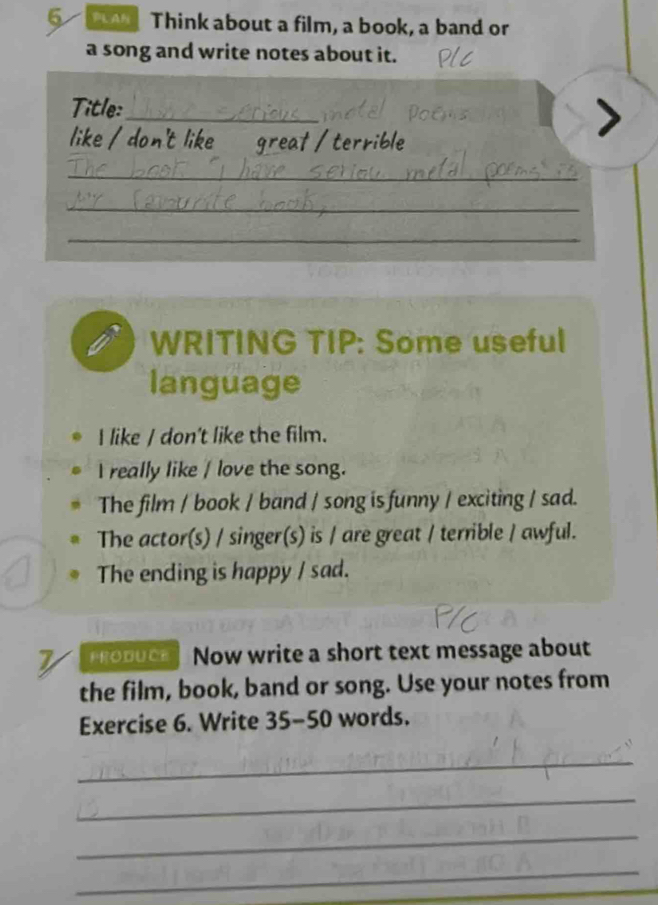 6 PLAN Think about a film, a book, a band or
a song and write notes about it. P/C
Title: I have serious metal poems
like / don't like great / terrible
The book "I have seriou metal poems" is
my favourite book,
WRITING TIP: Some useful
language
• I like / don't like the film.
• I really like / love the song.
• The film / book / band / song is funny / exciting / sad.
• The actor(s) / singer(s) is / are great / terrible / awful.
• The ending is happy / sad.
P/C
7 PRODUCE Now write a short text message about
the film, book, band or song. Use your notes from
Exercise 6. Write 35–50 words.
is